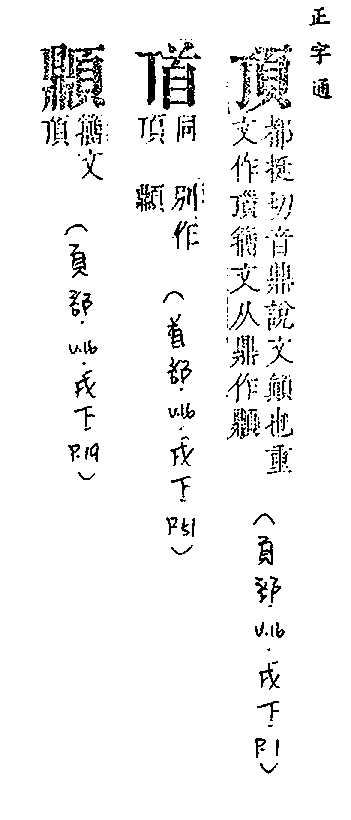 正字通
頂
都挺切音鼎說文顛也重
文作䫤籒文从鼎作顁
（頁部．V.16．戌下．P.1）
𩠑
同頂
別作顁
（首部．V.16．戌下．P.51）
顁
籒文頂
（頁部．V.16．戌下．P.19）